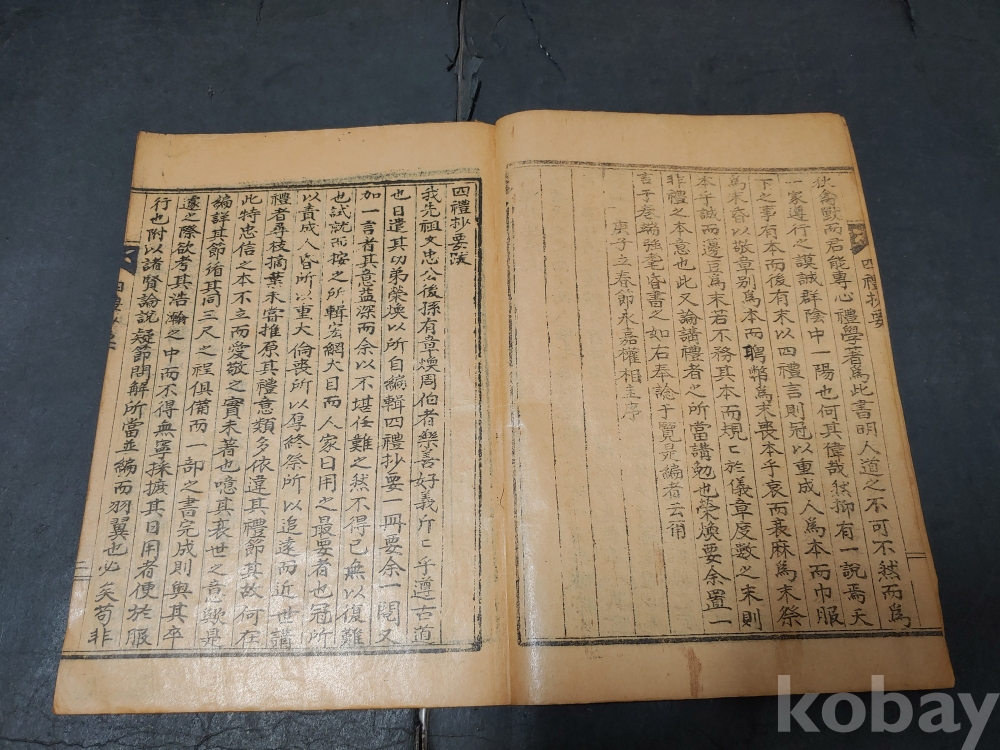 四禮抄要
狄禽獸而君能專心禮學著爲此書明人道之不可不然而爲
一家遵行之謨誠群陰中一陽也何其偉哉然抑有一說焉天
下之事有本而後有末以四禮言則冠以重成人爲本而巾服
爲末昏以敬章别爲本而聘幣爲末喪本乎哀而衰麻爲末祭
本乎誠而邊豆爲末若不務其本而規〻於儀章度數之末則
非禮之本意也此又論講禮者之所當講勉也榮煥要余置一
言于卷端強耄昏書之如右奉諗于覽是編者云爾
庚子之春節永嘉權相圭序
四禮抄要跋
我先祖文忠公後孫有章煥周伯者樂善好義斤〻乎遵古道
也日遣其功弟榮煥以所自編輯四禮抄要一冊要余一閱又
加一言者其意益深而余以不堪任難之然不得已無以復難
也試就而按之所輯宏綱大目而人家日用之最要者也冠所
以責成人昏所以重大倫喪所以厚終祭所以追遠而近世講
禮者尋枝摘葉未嘗推原其禮意類多依違其禮節其故何在
此特忠信之本不立而愛敬之實未著也噫其衰世之意歟是
編詳其節循其同三尺之程俱備而一部之書完成則與其卒
遽之際欲考其浩瀚之中而不得無寧採摭其日用者便於服
行也附以諸賢論說疑節問解所當並編而羽翼也必矣苟非